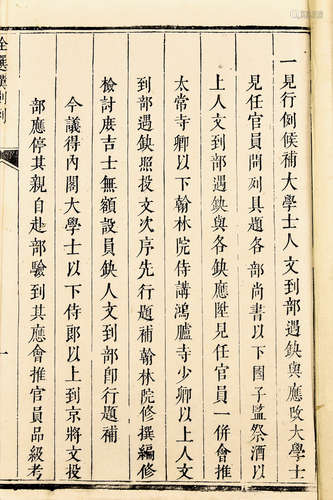 一見行例候補大學士人文到部遇缺與應改大學士
見任官員開列具題各部尚書以下國子監祭酒以
上人文到部遇缺與各缺應陞見任官員一併會推
太常寺卿以下翰林院侍講鴻臚寺少卿以上人文
到部遇缺照投文次序先行題補翰林院修撰編修
檢討庶吉士無額設員缺人文到部卽行題補
今議得內閣大學士以下侍郎以上到京將文投
部應停其親自赴部驗到其應會推官員品級考
全選